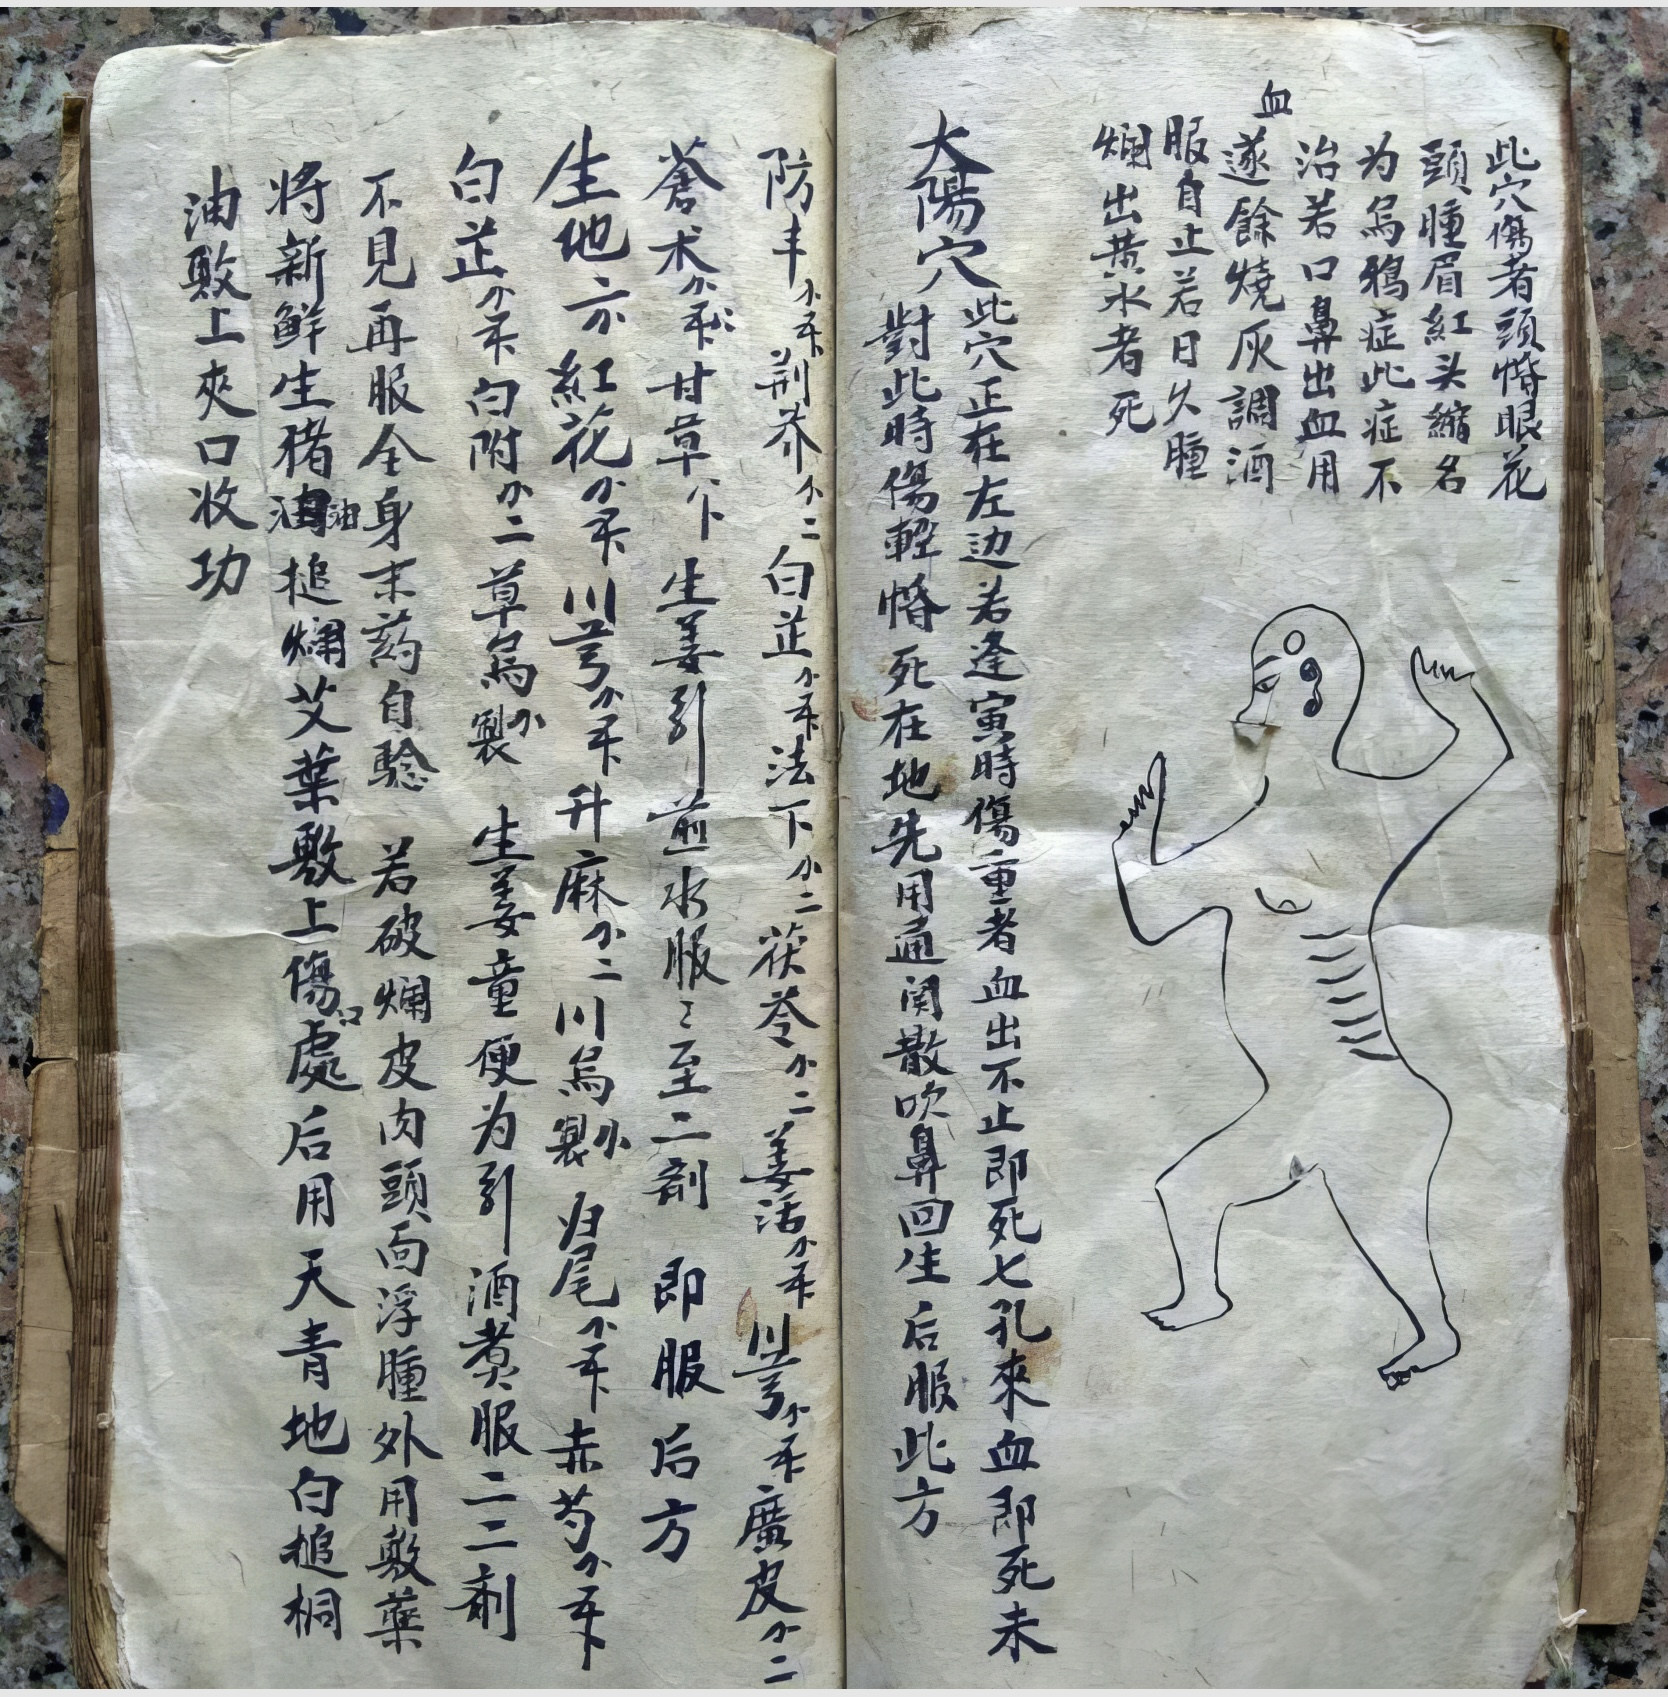 此穴傷者頭惛眼花
頭腫眉紅头縮名
为烏鴉症此症不
治若口鼻出血用
血遂餘燒灰調酒
服自止若日久腫
爛出黄水者死
大陽穴
此穴正在左边若逢寅時傷重者血出不止即死七孔來血即死未
對此時傷輕惛死在地先用通関散吹鼻回生后服此方
防丰 荆芥 二 白芷 法下 二 茯苓 二 姜活 川芎 廣皮 二
蒼术 甘草 生姜引煎水服〻至二剤 即服后方
生地 紅花 川芎 升麻 二 川烏製 归尾 赤芍
白芷 白附 二 草烏製 生姜童便为引 酒煮服二二剤
不見再服全身末葯自騐 若破爛皮肉頭面浮腫外用敷藥
將新鮮生猪油槌爛艾葉敷上傷口處后用天青地白槌桐
油敷上夾口收功